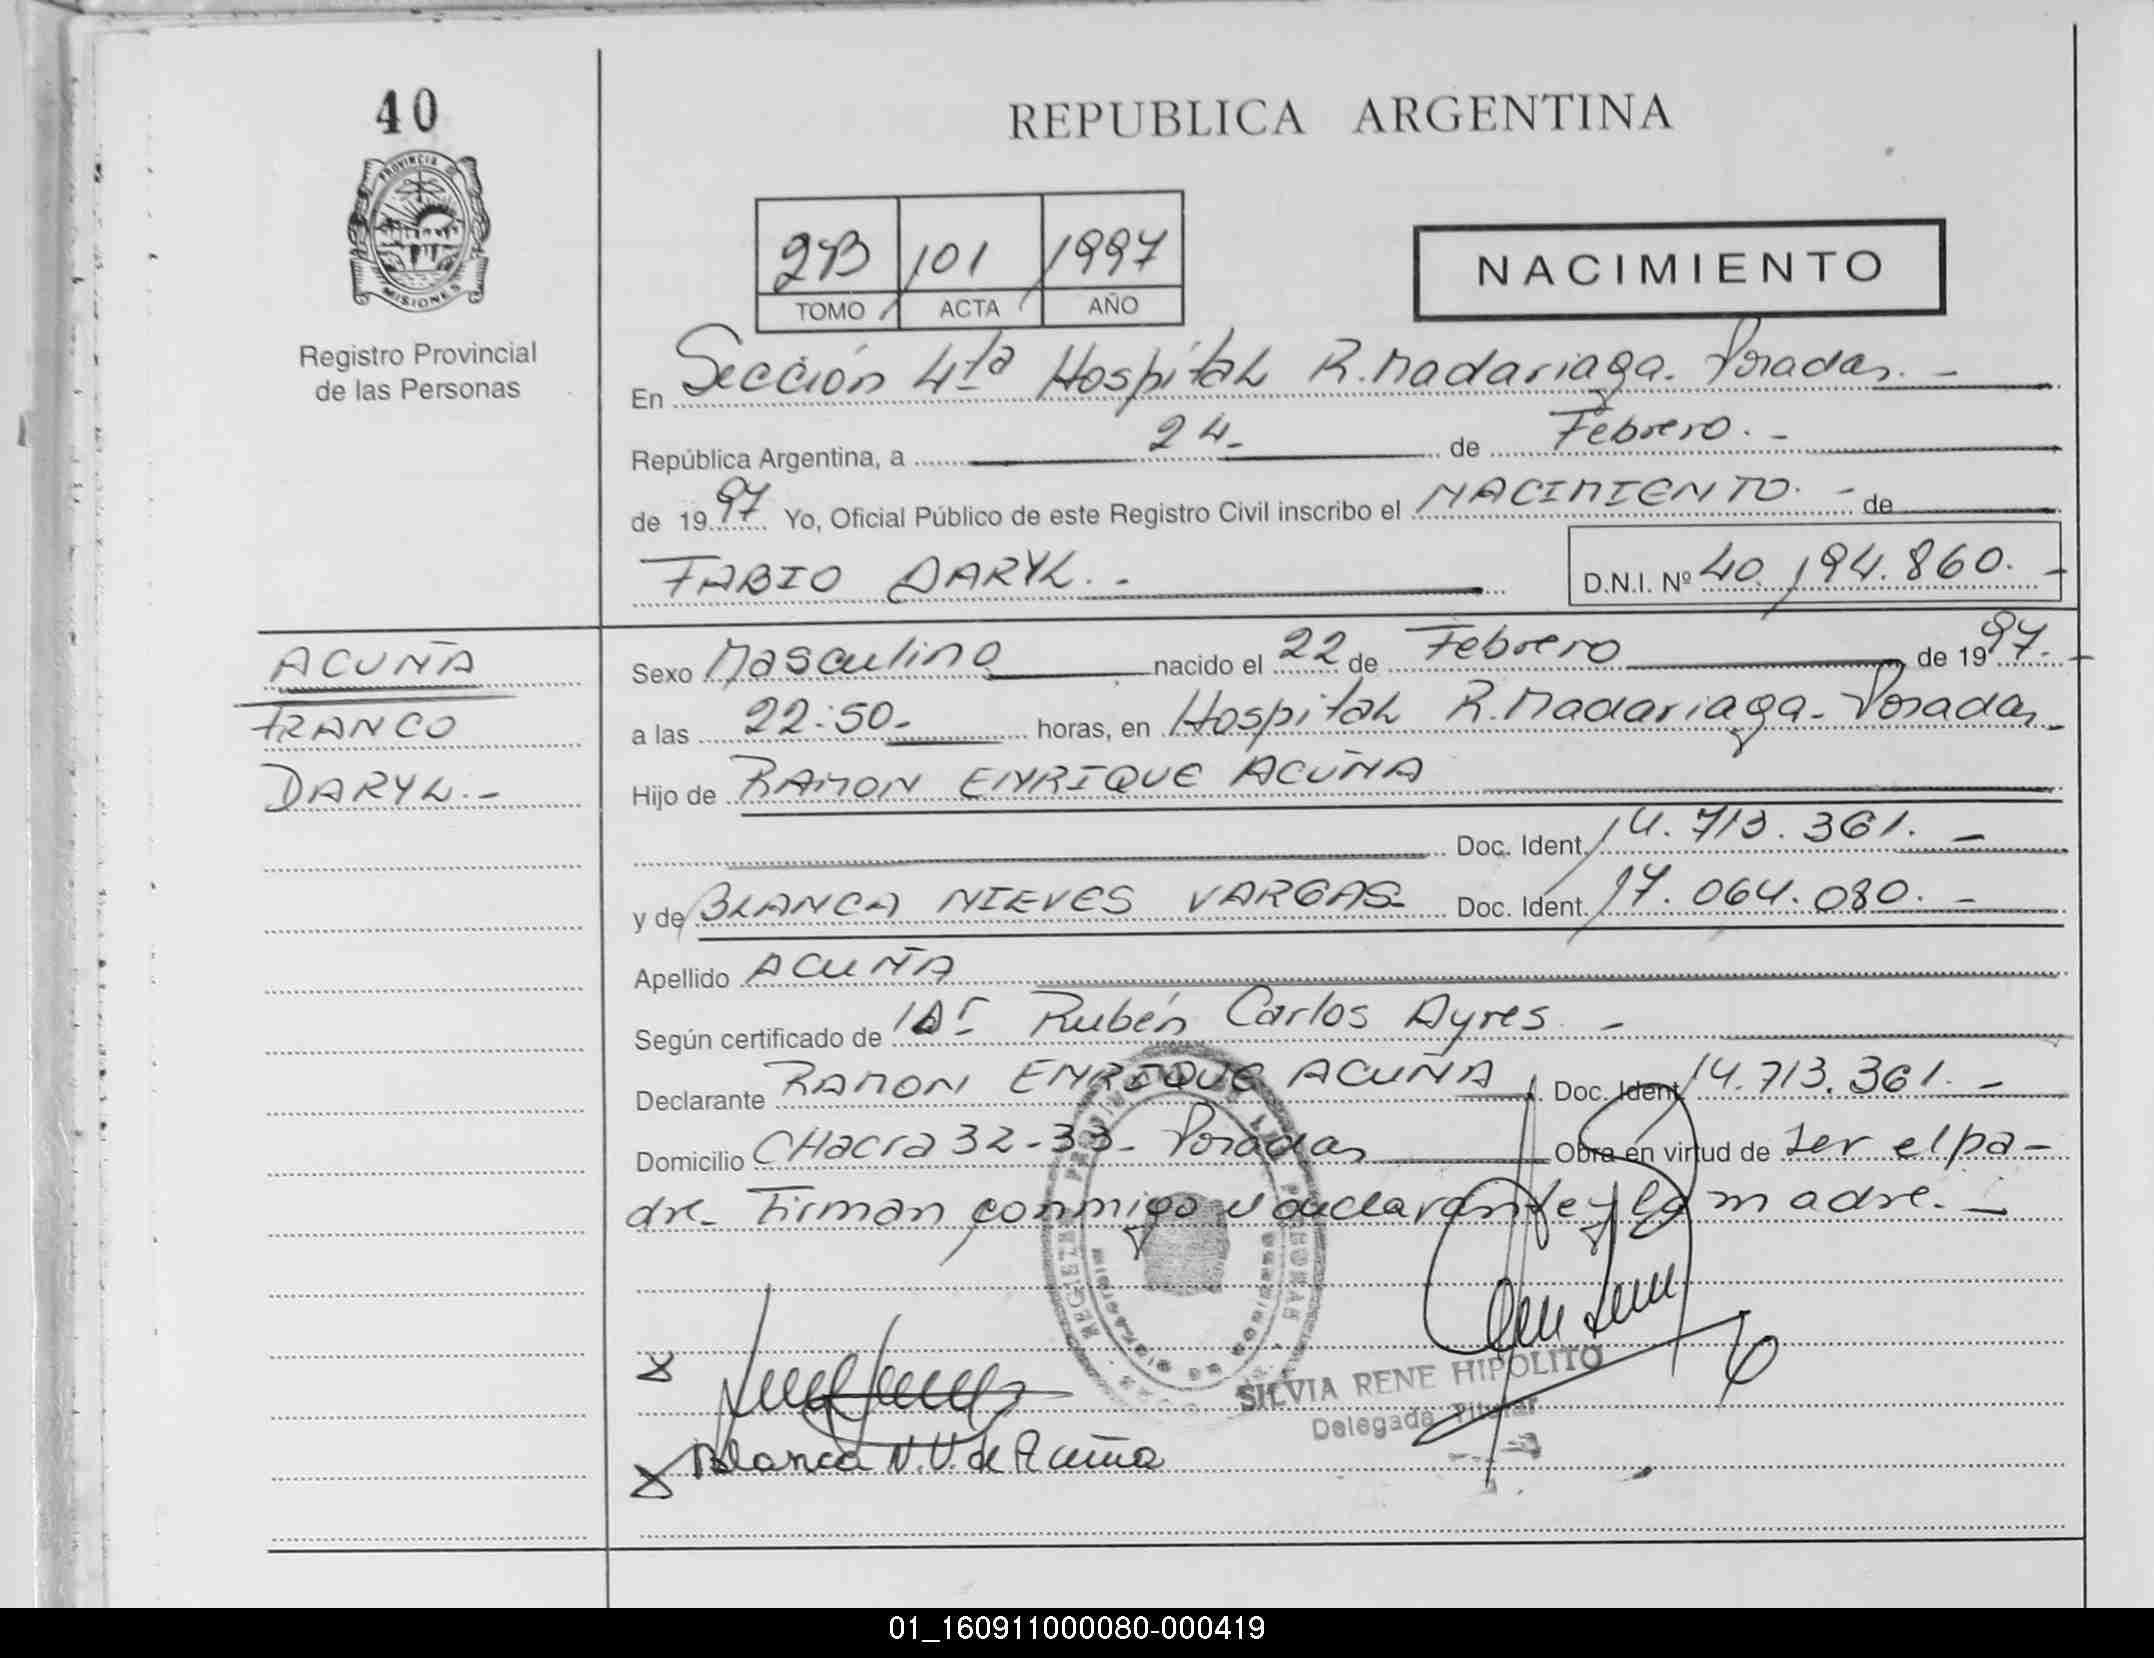 40
PROVINCIA
MISIONES
Registro Provincial
de las Personas
REPUBLICA ARGENTINA
2B 101 1997
TOMO ACTA AÑO
NACIMIENTO
En Sección 4ta Hospital R. Madariaga. Posadas. -
República Argentina, a 24- de Febrero. -
de 1997 Yo, Oficial Público de este Registro Civil inscribo el NACIMIENTO. - de
FABIO DARYL. - D.N.I. Nº 40.194.860. -
ACUÑA
FRANCO
DARYL. -
Sexo Masculino nacido el 22 de Febrero de 1997. -
a las 22:50- horas, en Hospital R. Madariaga - Posadas -
Hijo de RAMON ENRIQUE ACUÑA
Doc. Ident. 14.713.361. -
y de BLANCA NIEVES VARGAS - Doc. Ident. 17.064.080. -
Apellido ACUÑA
Según certificado de Dr Rubén Carlos Ayres. -
Declarante RAMON ENRIQUE ACUÑA Doc. Ident. 14.713.361. -
Domicilio CHacra 32-33- Posadas Obra en virtud de ser el pa-
dre- Firman conmigo el declarante y la madre. -
SILVIA RENE HIPOLITO
Delegada Titular
Blanca N. V. de Acuña
01_160911000080-000419